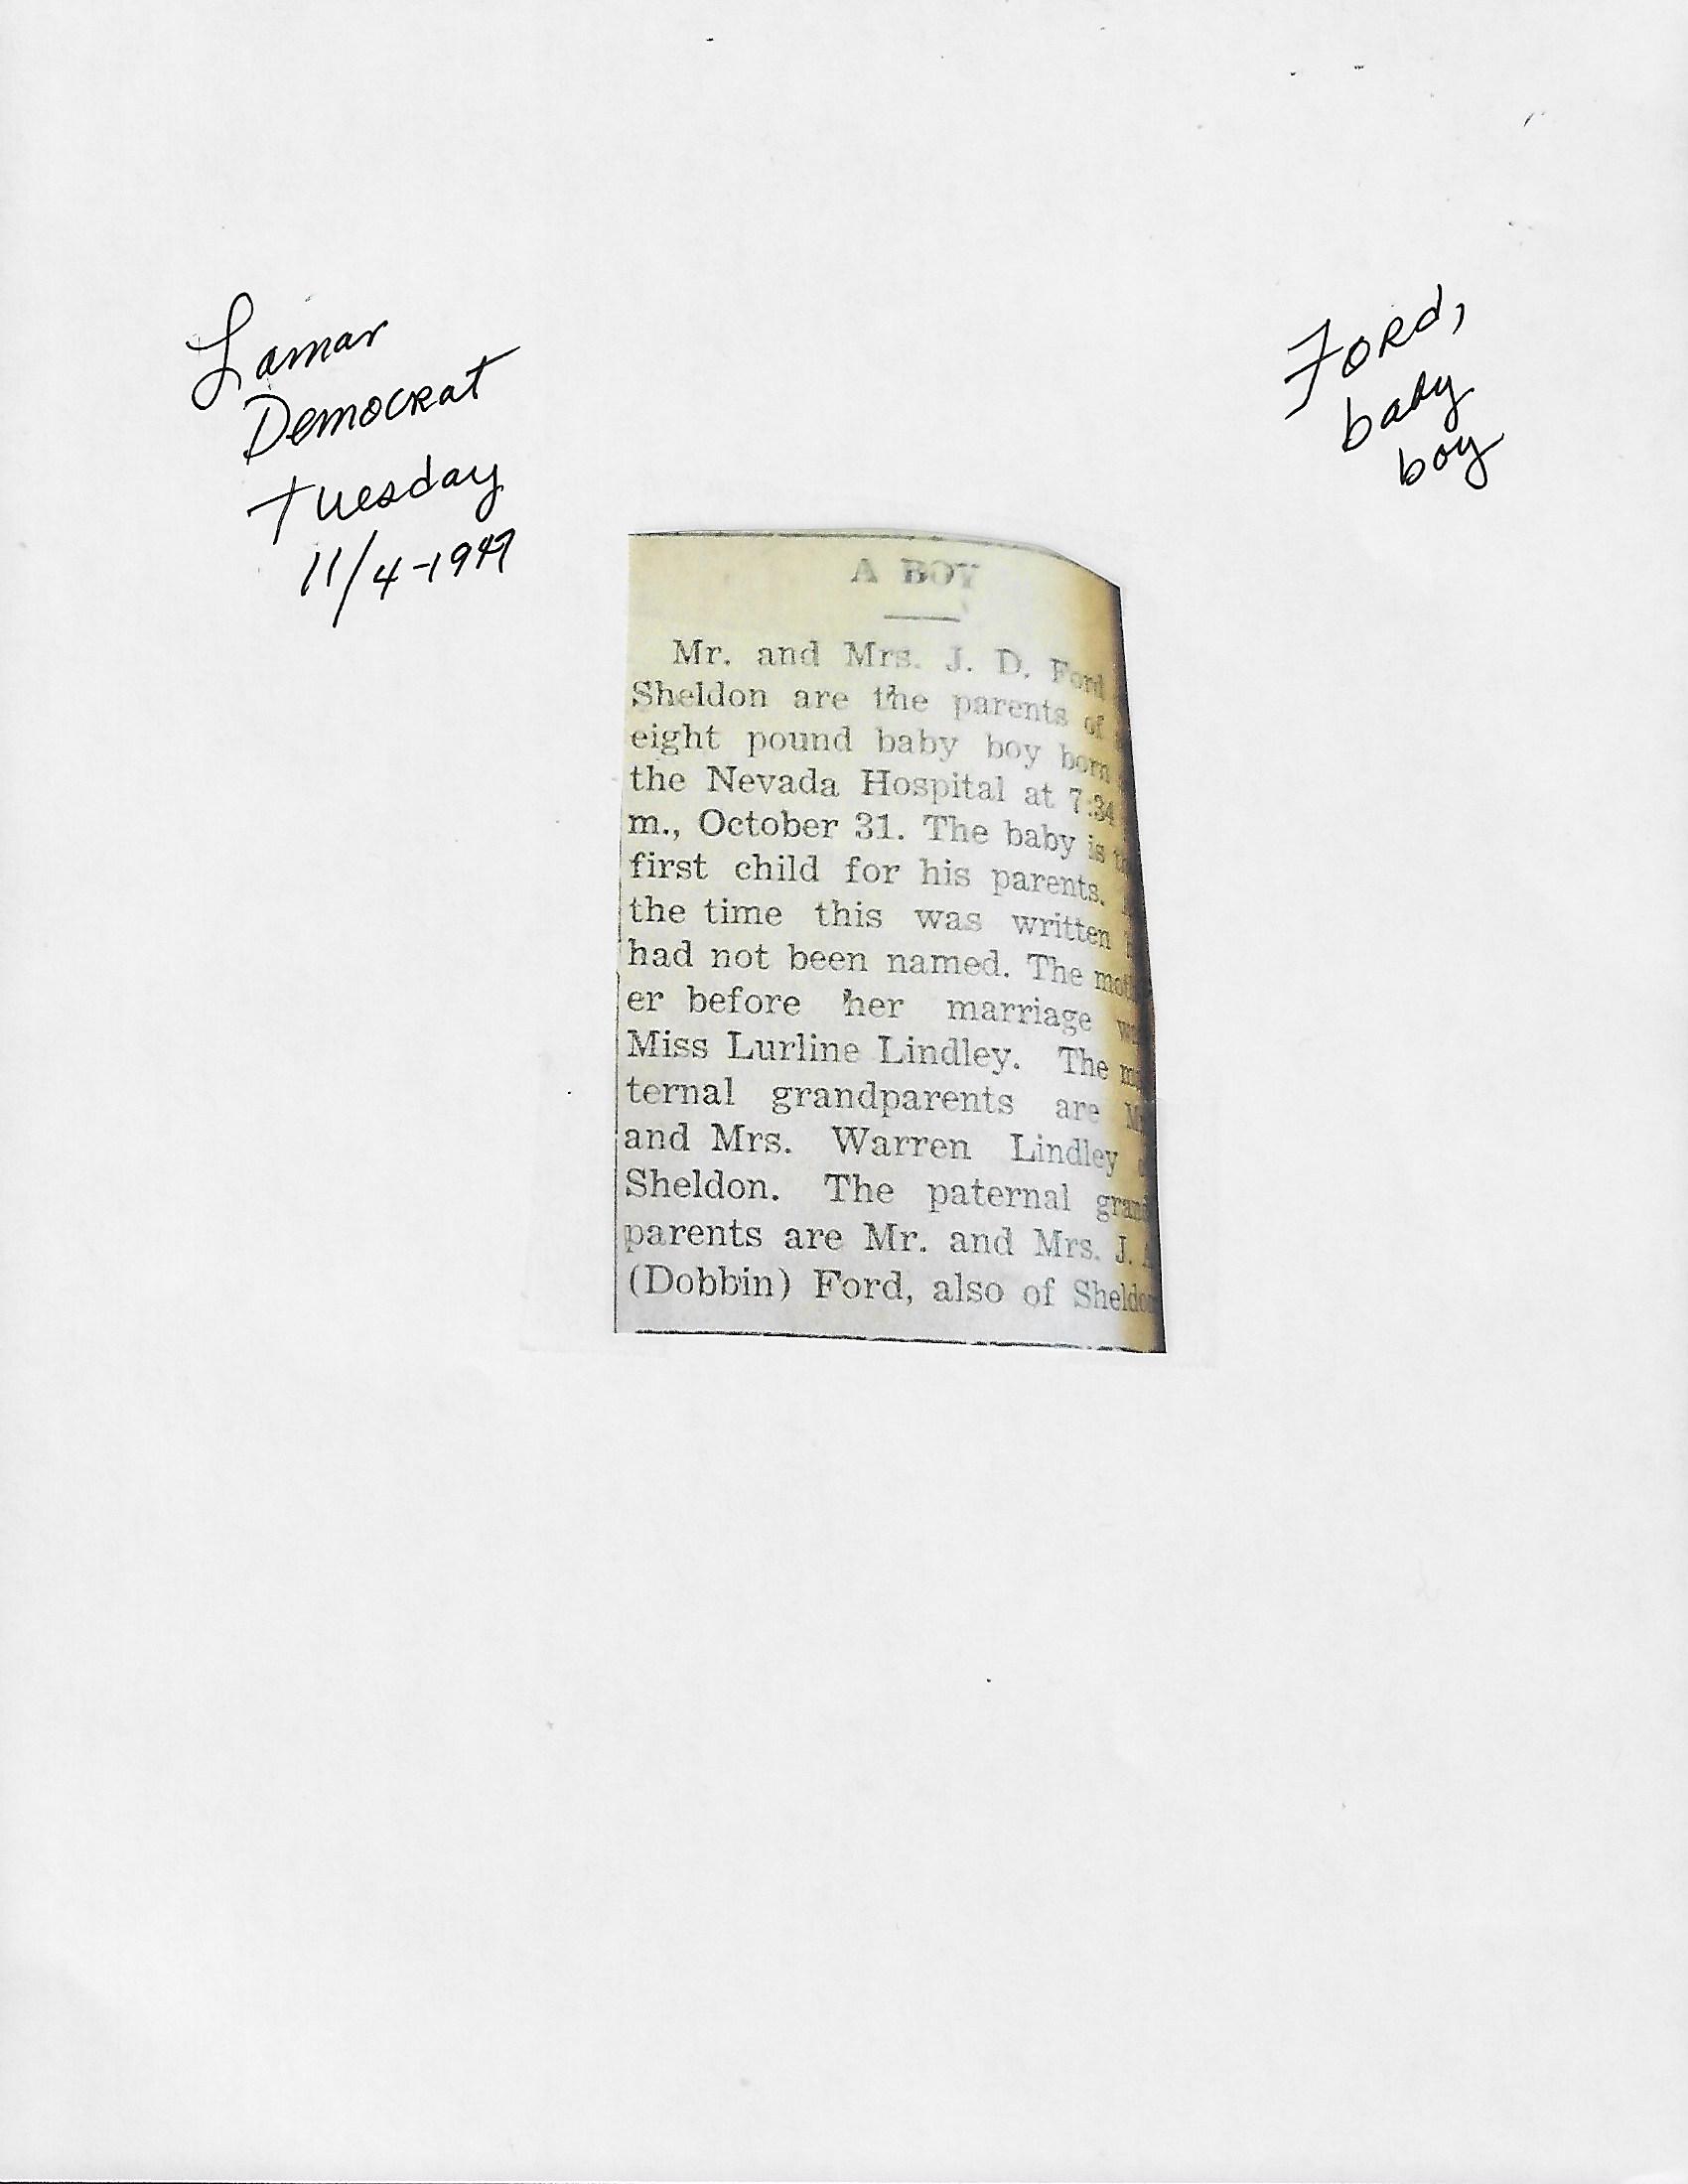 Lamar
Democrat
Tuesday
11/4-1947
Ford,
baby
boy
A BOY
Mr. and Mrs. J. D. Ford
Sheldon are the parents of
eight pound baby boy born
the Nevada Hospital at 7:34
m., October 31. The baby is
first child for his parents.
the time this was written
had not been named. The moth
er before her marriage
Miss Lurline Lindley. The
ternal grandparents are
and Mrs. Warren Lindley
Sheldon. The paternal grand
parents are Mr. and Mrs. J.
(Dobbin) Ford, also of Sheldon